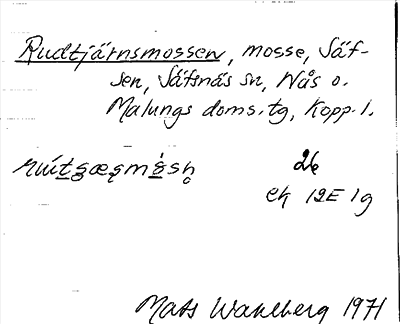 Rudtjärnsmossen, mosse, Säf-
sen, Säfsnäs sn, Nås o.
Malungs doms.tg, Kopp. l.
26
ek 12E 1g
Mats Wahlberg 1971